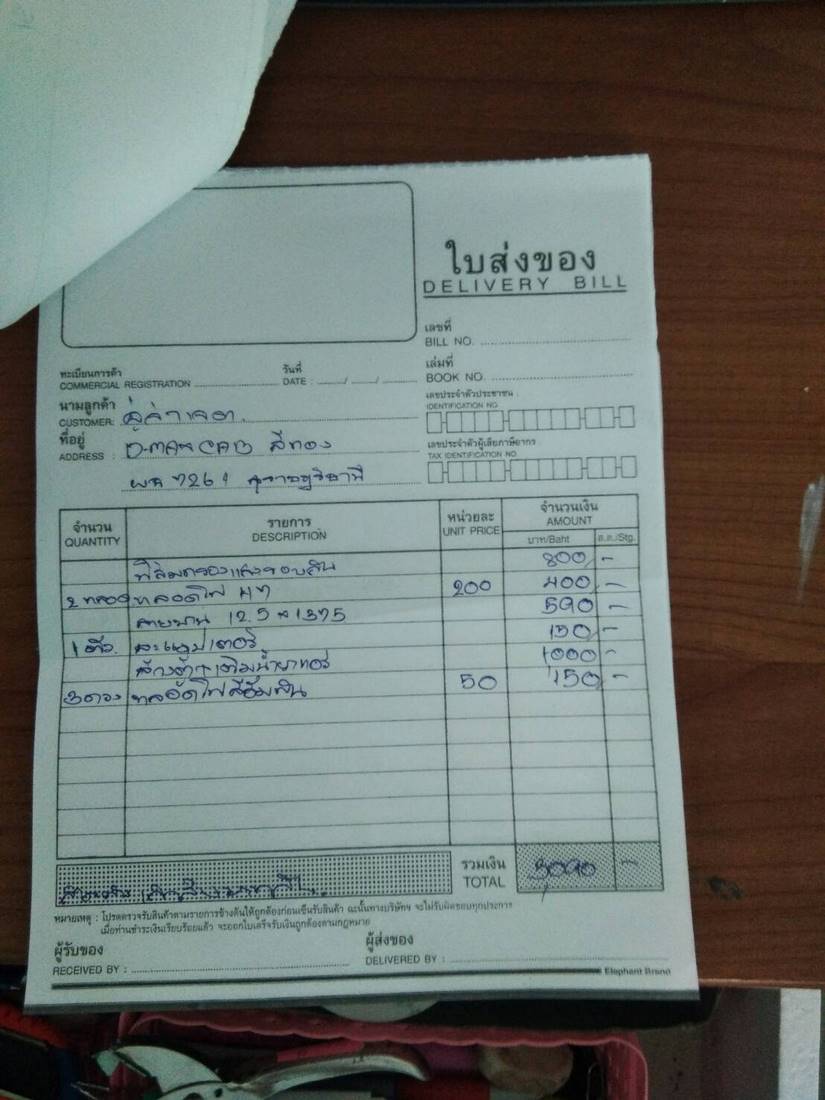 ใบส่งของ
DELIVERY BILL
เลขที่
BILL NO.
ทะเบียนการค้า
COMMERCIAL REGISTRATION
วันที่
DATE : / /
เล่มที่
BOOK NO.
นามลูกค้า
CUSTOMER:
เลขประจำตัวประชาชน :
IDENTIFICATION NO
ที่อยู่
ADDRESS : D-MAX CAB สีทอง
เลขประจำตัวผู้เสียภาษีอากร
TAX IDENTIFICATION NO.
7261 สุราษฎร์ธานี
จำนวน รายการ หน่วยละ จำนวนเงิน
QUANTITY DESCRIPTION UNIT PRICE AMOUNT
บาท/Baht ส.ต./Stg.
ฟิล์มกรองแสง 800 -
2 หลอด หลอดไฟ H7 200 400 -
สายพาน 12.5 x 1375 590 -
1 ตัว 150 -
ล้างตู้ เติมน้ำยาแอร์ 1000 -
3 ดวง หลอดไฟ 50 150 -
รวมเงิน 3090 -
TOTAL
หมายเหตุ : โปรดตรวจรับสินค้าตามรายการข้างต้นให้ถูกต้องก่อนเซ็นรับสินค้า ฉะนั้นทางบริษัทฯ จะไม่รับผิดชอบทุกประการ
เมื่อท่านชำระเงินเรียบร้อยแล้ว จะออกใบเสร็จรับเงินถูกต้องตามกฎหมาย
ผู้รับของ ผู้ส่งของ
RECEIVED BY : DELIVERED BY :
Elephant Brand